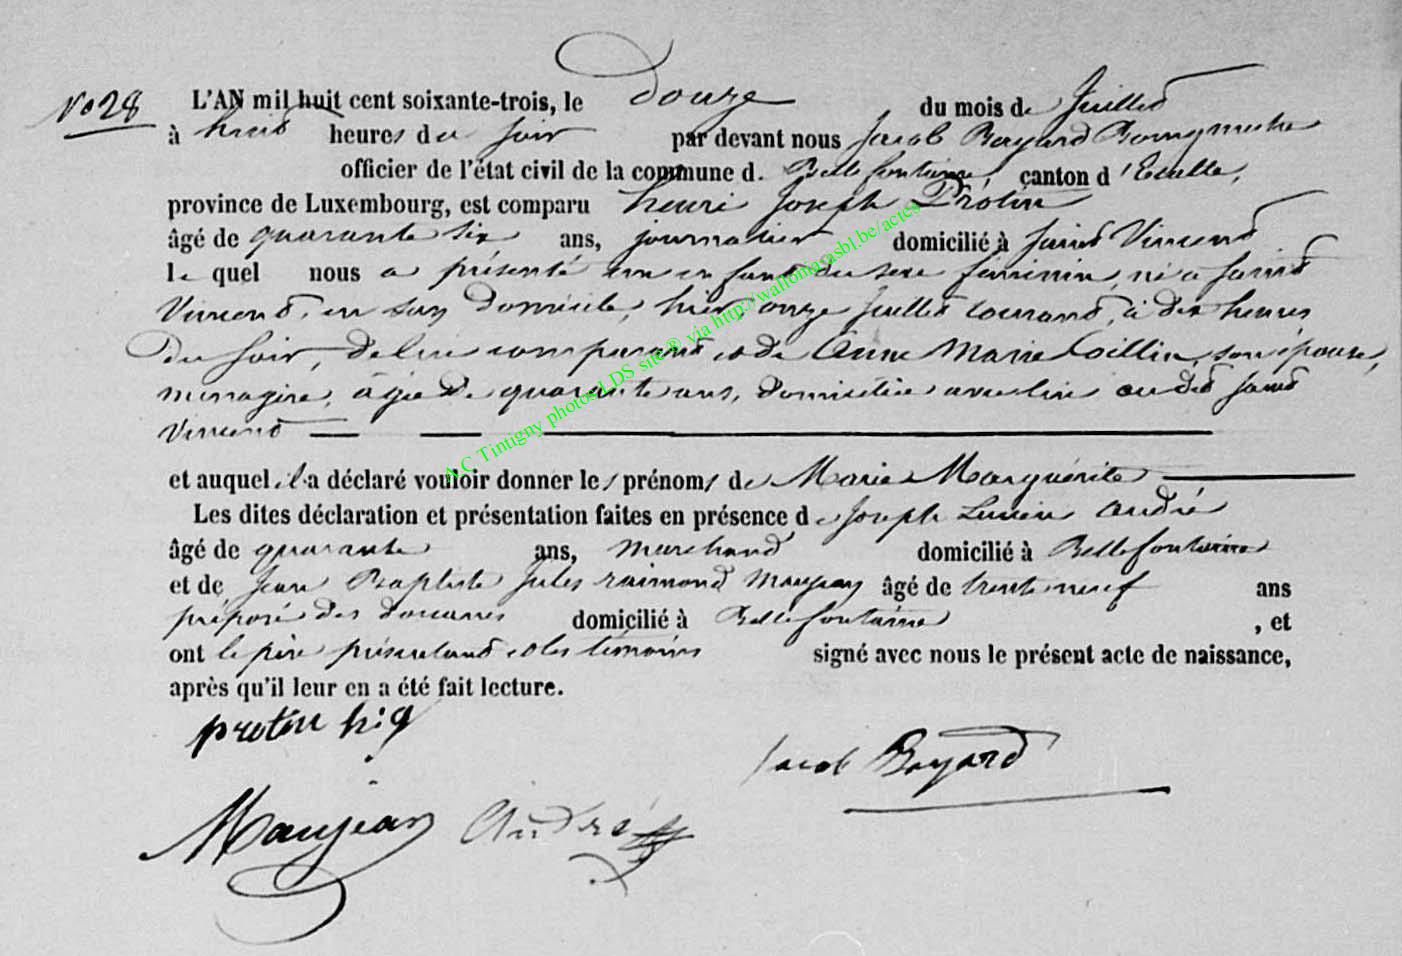 No 28 L'AN mil huit cent soixante-trois, le douze du mois de Juillet
à huit heures du soir par devant nous Jacob Bayard Bourgmestre
officier de l'état civil de la commune d. Bellefontaine, canton d'Etalle,
province de Luxembourg, est comparu henri Joseph Protin
âgé de quarante six ans, journalier domicilié à Saint Vincent
le quel nous a présenté un enfant du sexe féminin, né a Saint
Vincent, en son domicile, hier, onze Juillet courant, à dix heures
du soir, de lui comparant et de Anne Marie Collin, son épouse,
menagère, agée de quarante ans, domiciliée avec lui au dit Saint
Vincent
et auquel il a déclaré vouloir donner les prénoms de Marie Marguérite
Les dites déclaration et présentation faites en présence de Joseph Lucien André
âgé de quarante ans, marchand domicilié à Bellefontaine
et de Jean Baptiste Jules raimond Maujean âgé de trente neuf ans
préposé des douanes domicilié à Bellefontaine , et
ont le père présentant et les témoins signé avec nous le présent acte de naissance,
après qu'il leur en a été fait lecture.
protin h:g
Jacob Bayard
Maujean André
A.C Tintigny photos LDS site ® via http://wallonia-asbl.be/actes